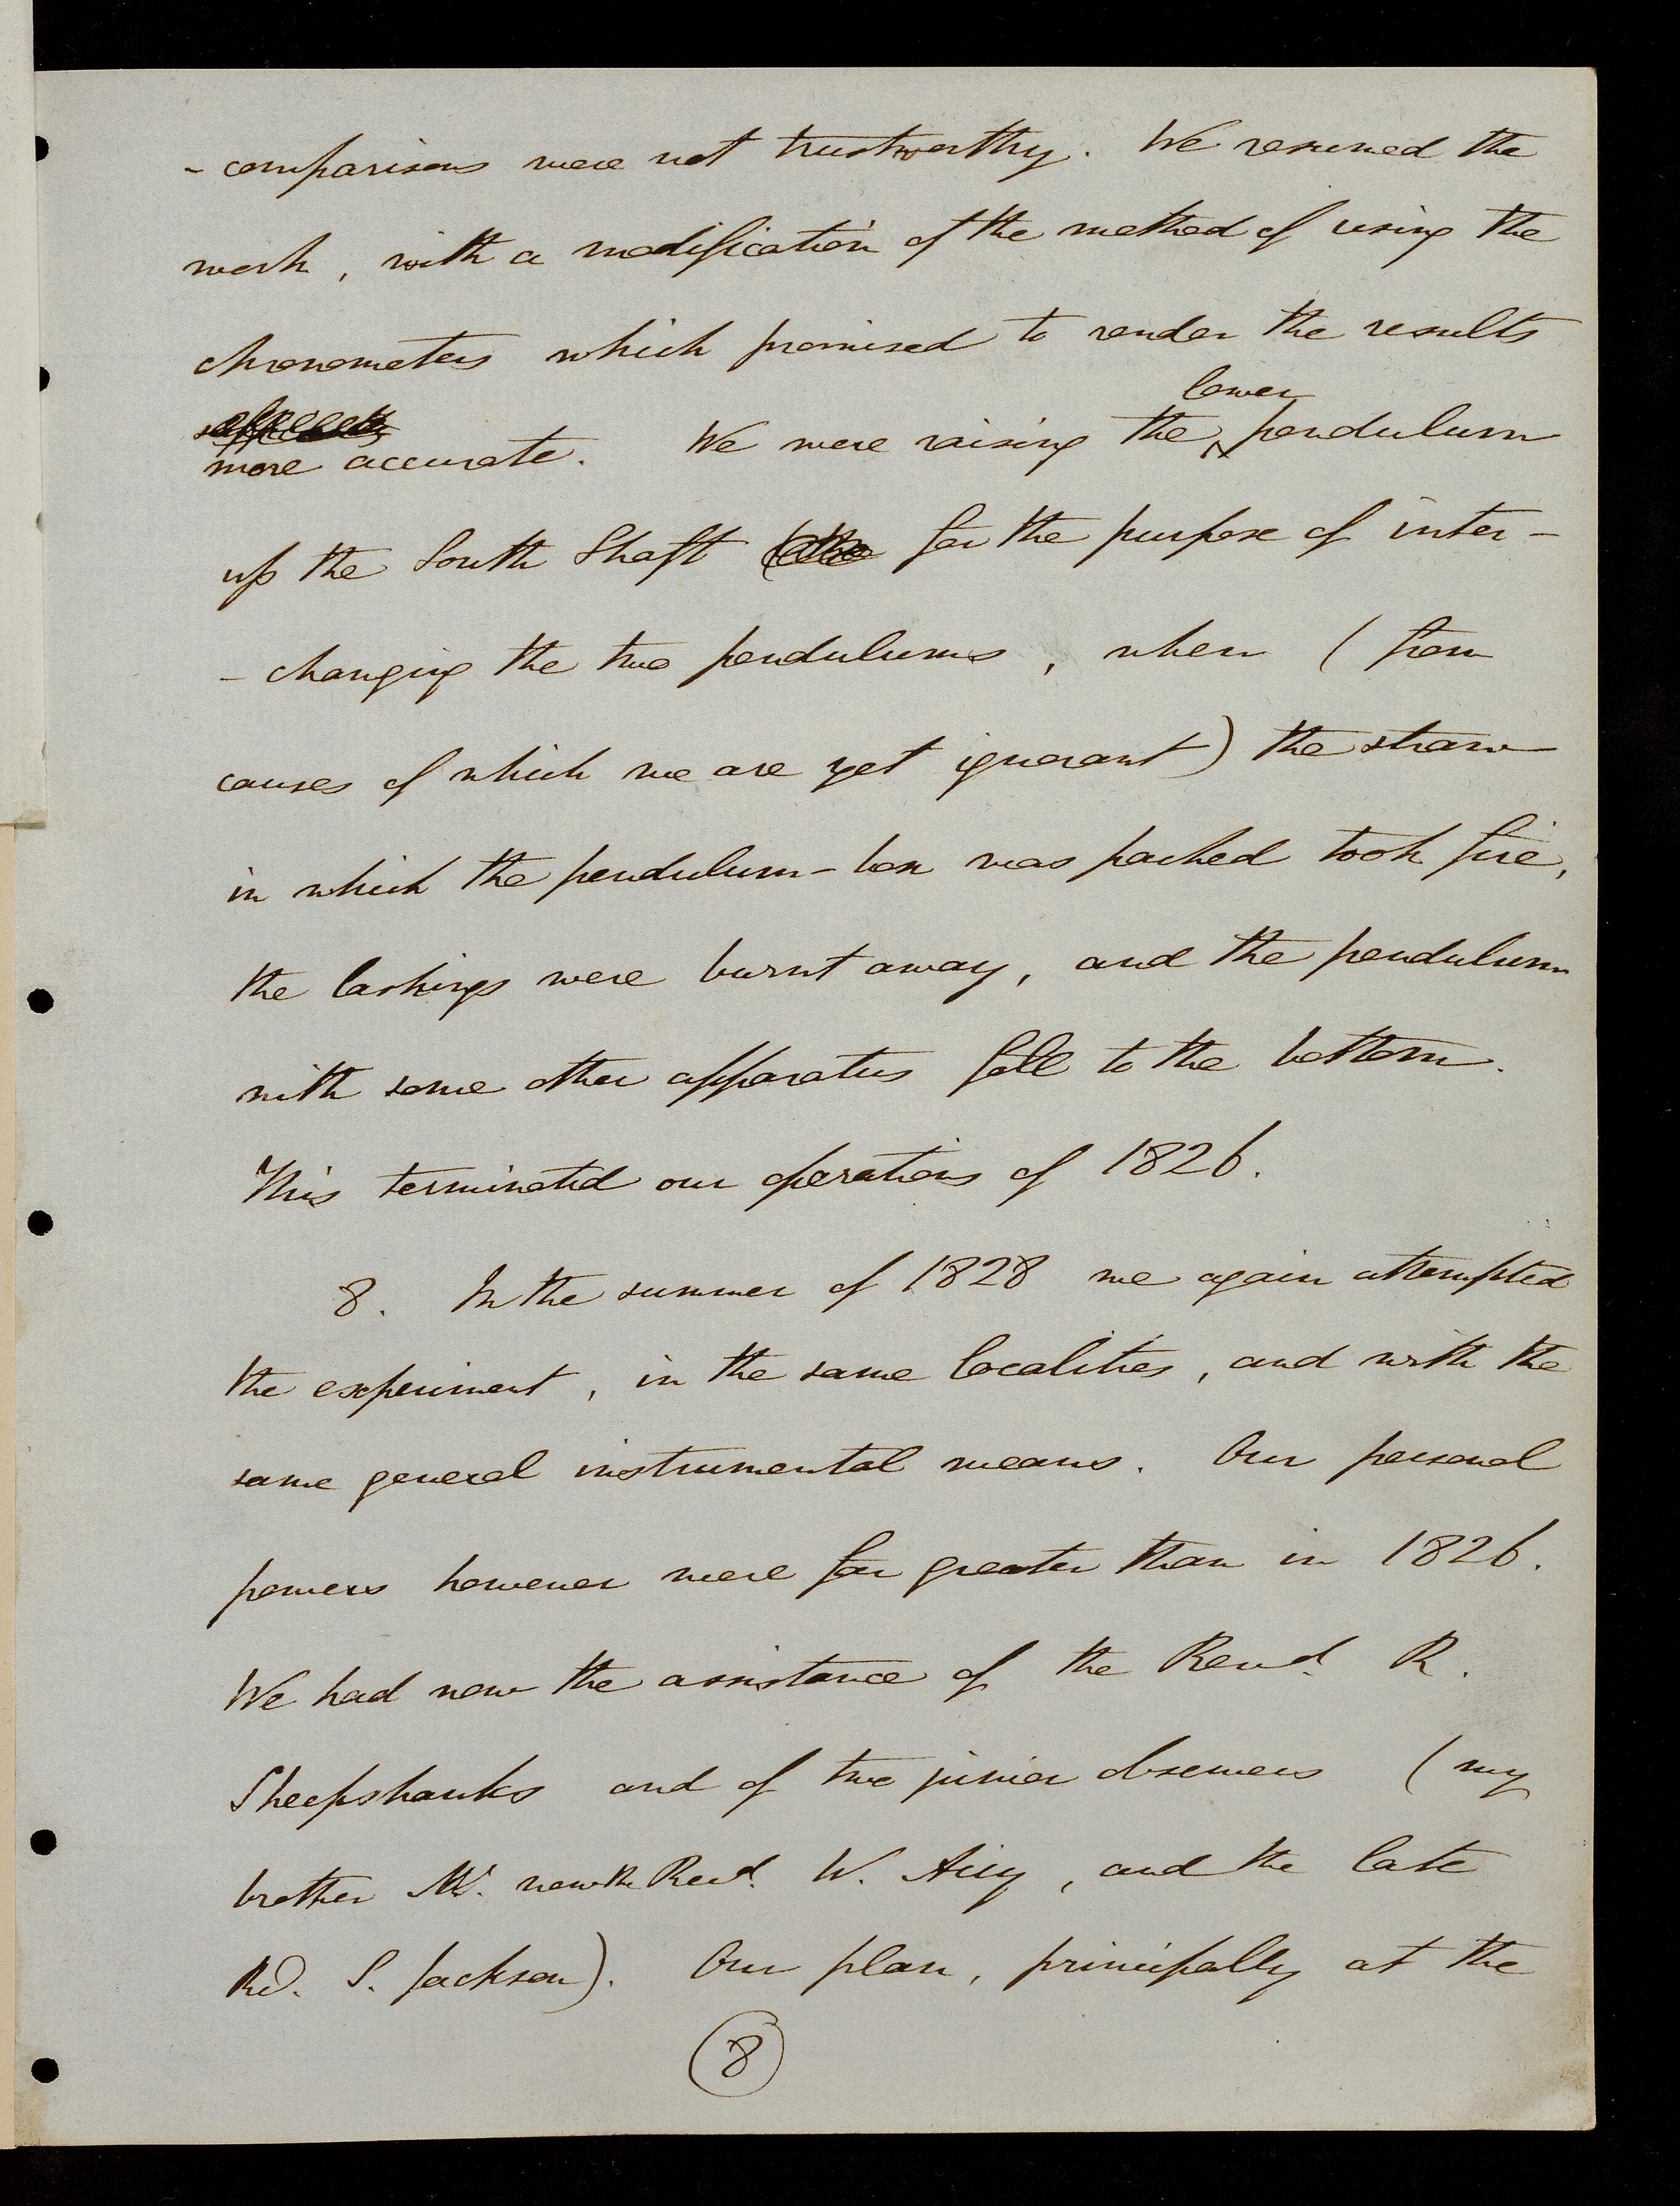 - comparisons were not trustworthy. We resumed the
work, with a modification of the method of using the
chronometers which promised to render the results
lower
more accurate. We were raising the pendulum
up the South Shaft for the purpose of inter-
- changing the two pendulums, when (from
causes of which we are yet ignorant) the straw
in which the pendulum-box was packed took fire,
the lashings were burnt away, and the pendulum
with some other apparatus fell to the bottom.
This terminated our operations of 1826.
8. In the summer of 1828 we again attempted
the experiment, in the same localities, and with the
same general instrumental means. Our personal
powers however were far greater than in 1826.
We had now the assistance of the Revd. R.
Sheepshanks and of two junior observers (my
brother Mr. now the Revd. W. Airy, and the late
Rd. S. Jackson). Our plan, principally at the
8